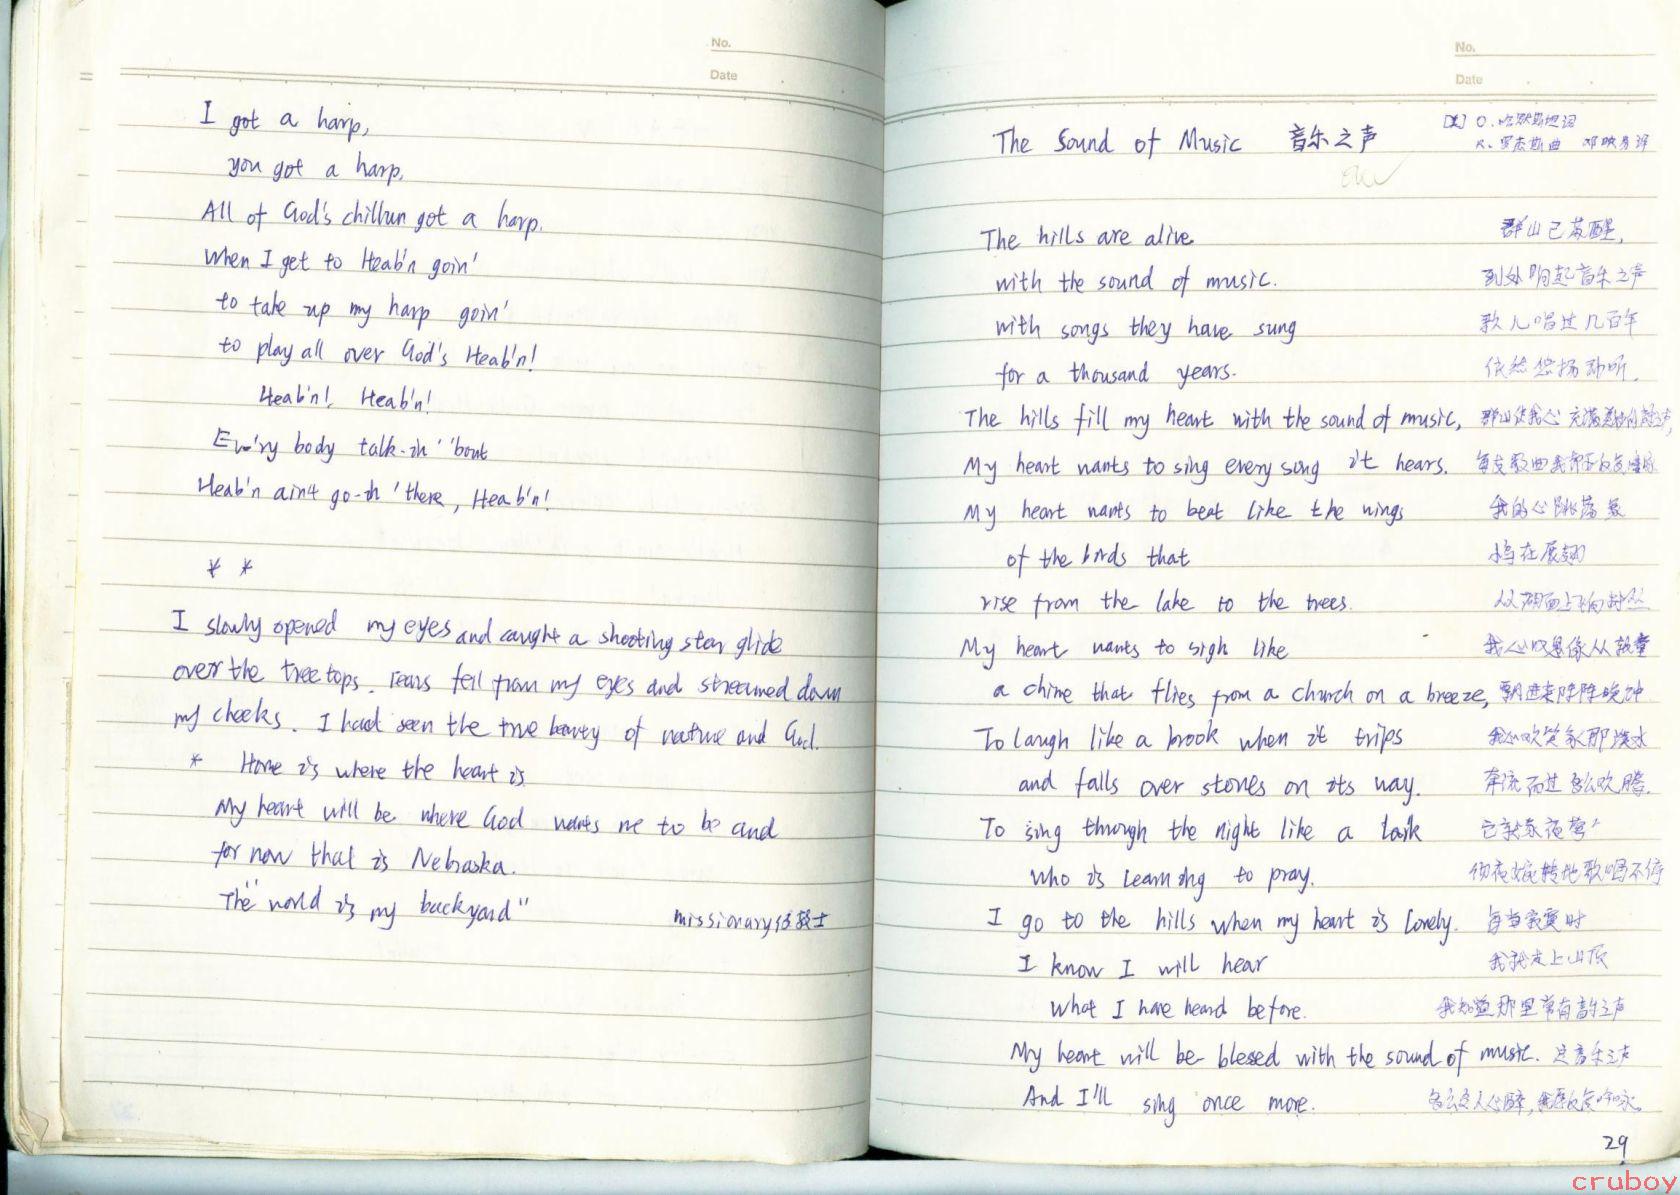 No.
Date
I got a harp,
you got a harp,
All of God's chillun got a harp.
When I get to Heab'n goin'
to take up my harp goin'
to play all over God's Heab'n!
Heab'n!, Heab'n!
Ev'ry body talk-in' 'bout
Heab'n ain4 go-in' there, Heab'n!
* *
I slowly opened my eyes and caught a shooting star glide
over the tree tops. Tears fell from my eyes and streamed down
my cheeks. I had seen the true beauty of nature and God.
* Home is where the heart is
My heart will be where God wants me to be and
for now that is Nebraska.
The "world is my backyard"
missionary 传教士
No.
Date
The Sound of Music 音乐之声
[美] O.哈默斯坦词
R.罗杰斯曲 邓映易译
The hills are alive 群山已苏醒,
with the sound of music. 到处响起音乐之声
with songs they have sung 歌儿唱过几百年
for a thousand years. 依然悠扬动听.
The hills fill my heart with the sound of music, 群山使我心充满
My heart wants to sing every song it hears. 每支歌曲我都
My heart wants to beat like the wings 我的心跳荡
of the birds that 在展翅
rise from the lake to the trees. 从湖面上飞向树丛
My heart wants to sigh like 我心叹息像从教堂
a chime that flies from a church on a breeze, 飘进来阵阵晚钟
To laugh like a brook when it trips 我心欢笑象那溪水
and falls over stones on its way. 奔流而过多么欢腾.
To sing through the night like a lark 它就象夜莺
who is learning to pray. 彻夜婉转地歌唱不停
I go to the hills when my heart is lonely. 每当寂寞时
I know I will hear 我就走上山顶
What I have heard before. 我知道那里常有音乐之声
My heart will be blessed with the sound of music. 这音乐之声
And I'll sing once more. 多么
29
cruboy